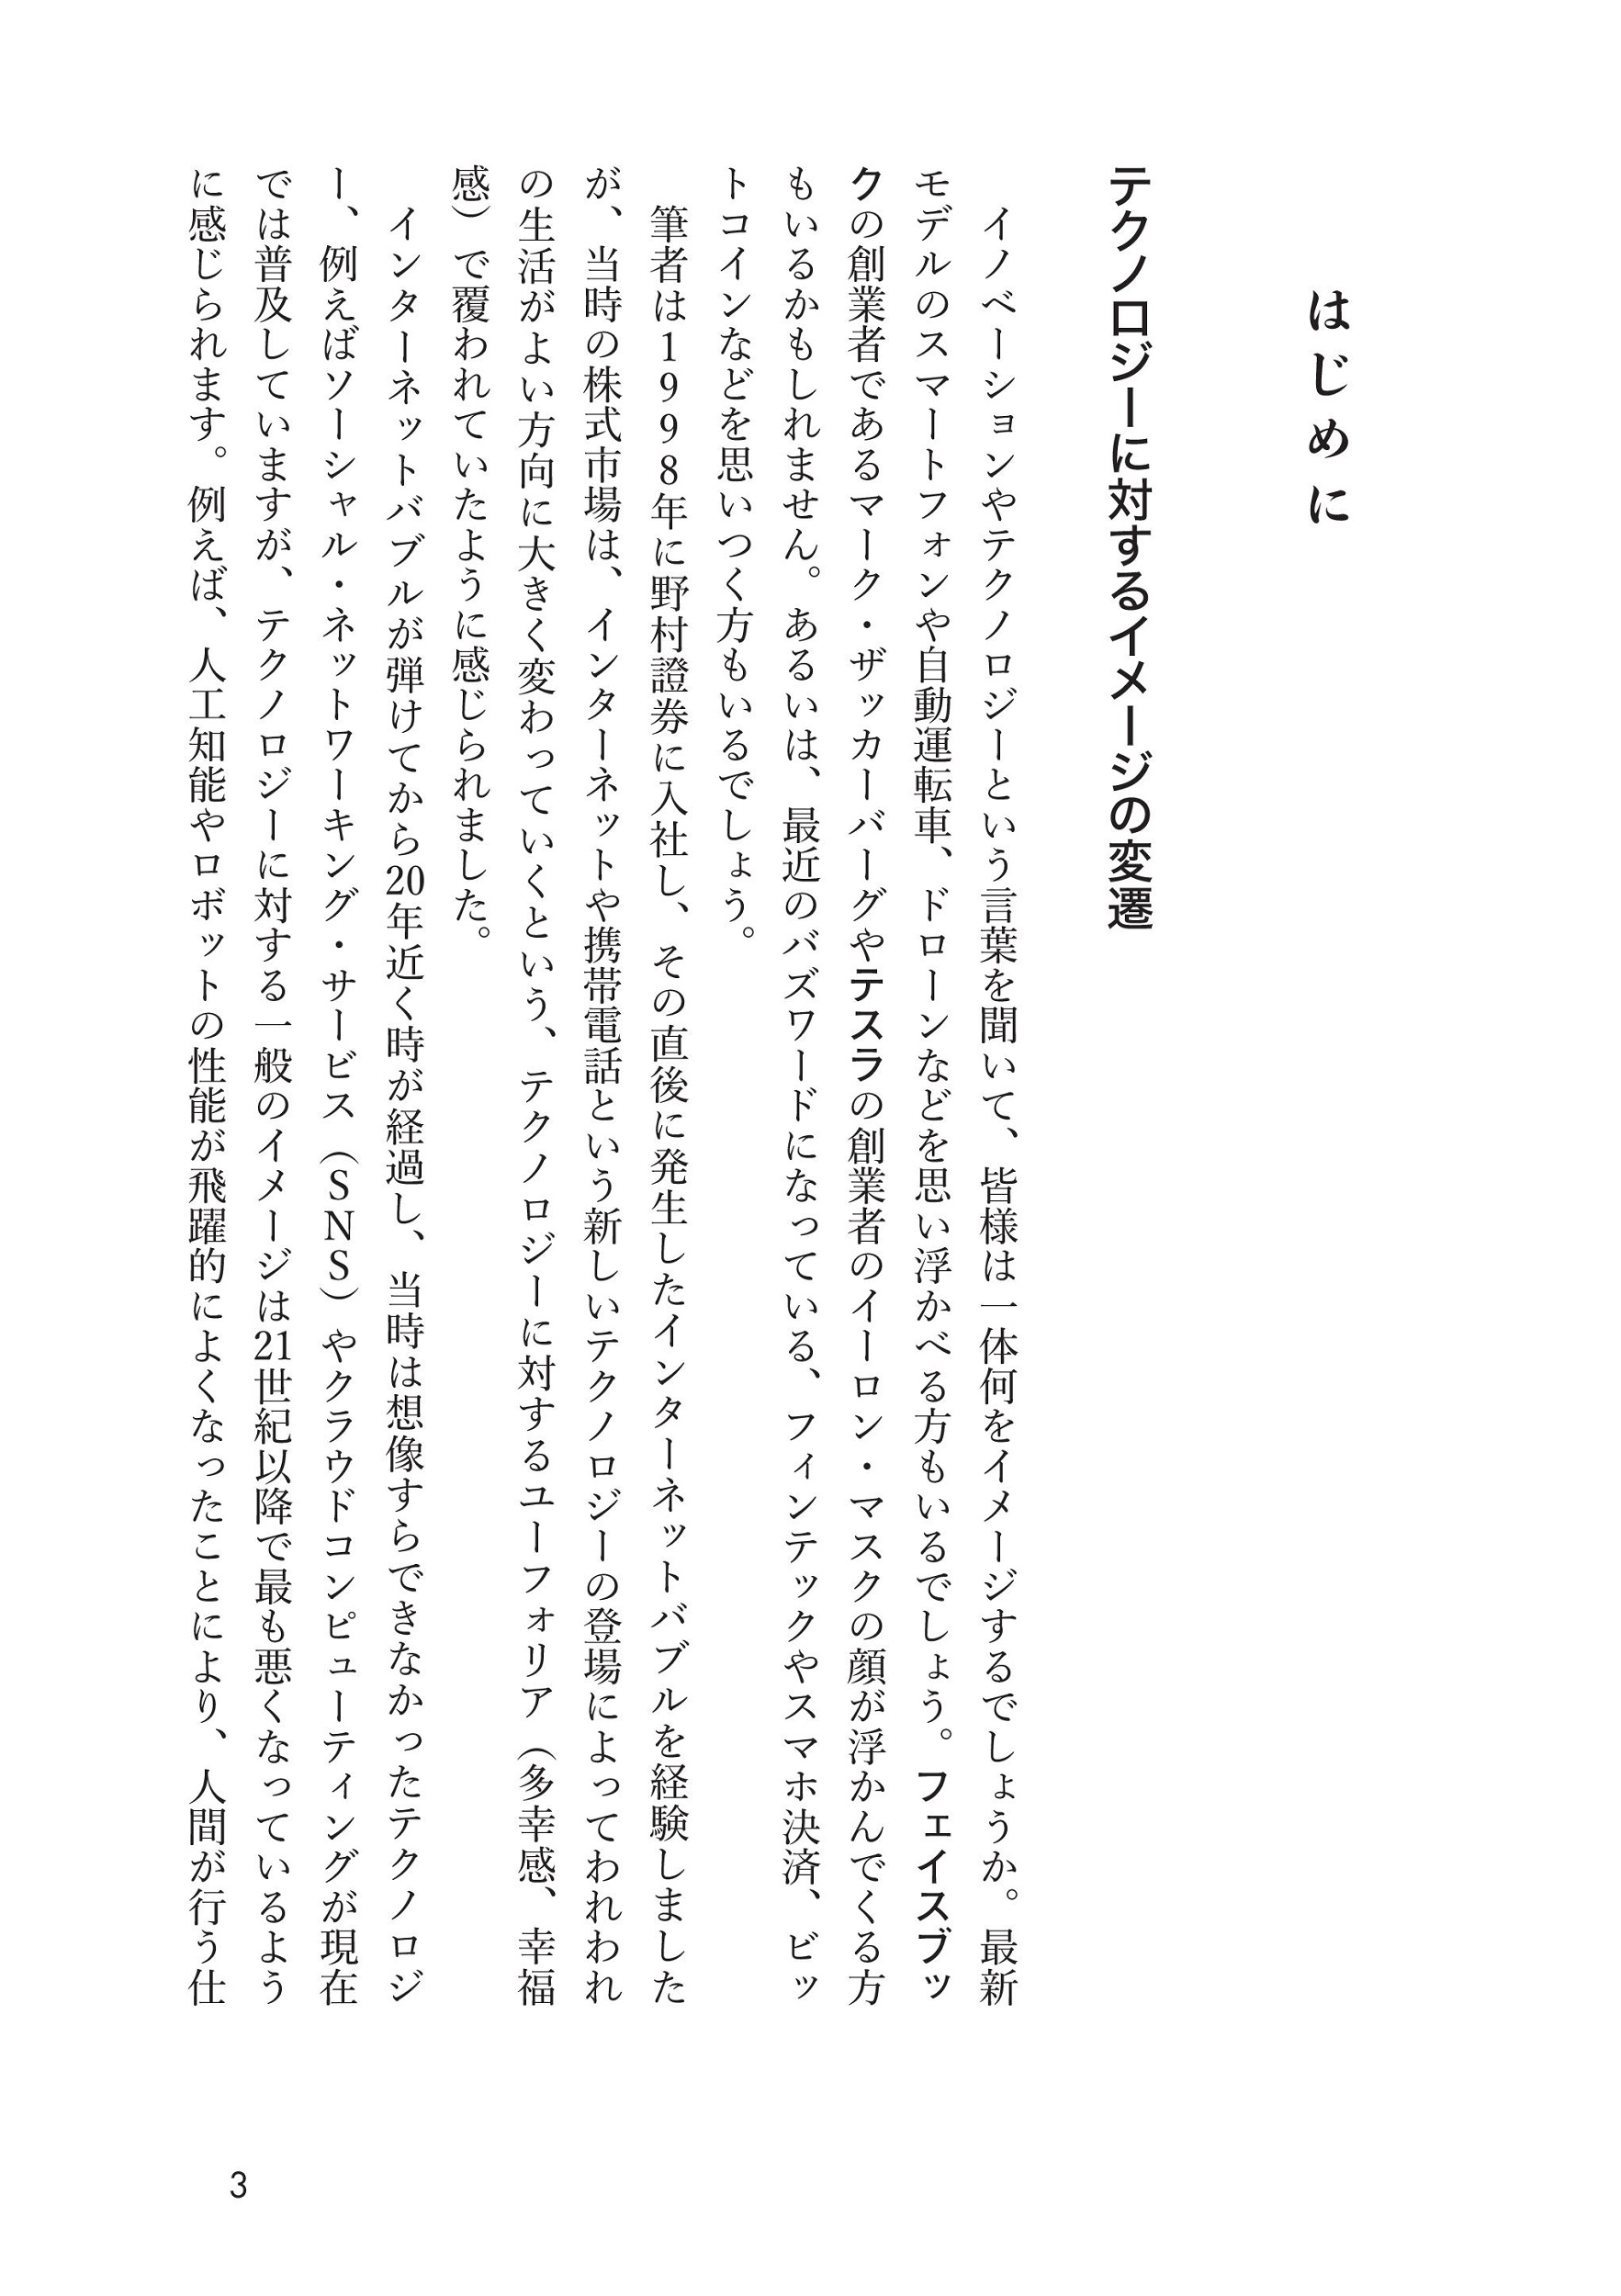 はじめに
テクノロジーに対するイメージの変遷
イノベーションやテクノロジーという言葉を聞いて、皆様は一体何をイメージするでしょうか。最新
モデルのスマートフォンや自動運転車、ドローンなどを思い浮かべる方もいるでしょう。フェイスブッ
クの創業者であるマーク・ザッカーバーグやテスラの創業者のイーロン・マスクの顔が浮かんでくる方
もいるかもしれません。あるいは、最近のバズワードになっている、フィンテックやスマホ決済、ビッ
トコインなどを思いつく方もいるでしょう。
筆者は1998年に野村證券に入社し、その直後に発生したインターネットバブルを経験しました
が、当時の株式市場は、インターネットや携帯電話という新しいテクノロジーの登場によってわれわれ
の生活がよい方向に大きく変わっていくという、テクノロジーに対するユーフォリア（多幸感、幸福
感）で覆われていたように感じられました。
インターネットバブルが弾けてから20年近く時が経過し、当時は想像すらできなかったテクノロジ
ー、例えばソーシャル・ネットワーキング・サービス（SNS）やクラウドコンピューティングが現在
では普及していますが、テクノロジーに対する一般のイメージは21世紀以降で最も悪くなっているよう
に感じられます。例えば、人工知能やロボットの性能が飛躍的によくなったことにより、人間が行う仕
3